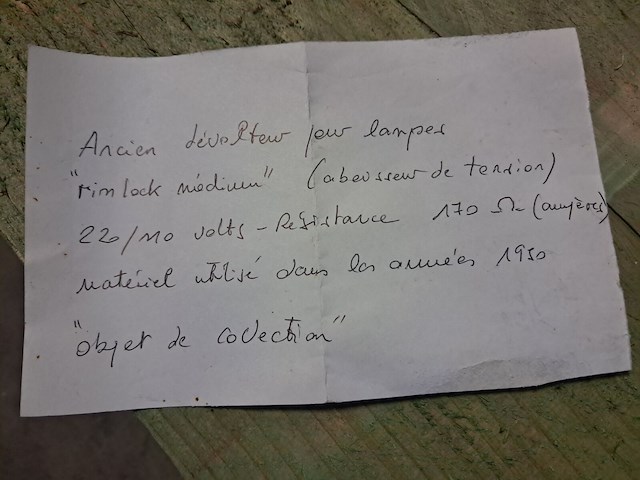 Ancien dévolteur pour lampes
"rimlock médium" (abaisseur de tension)
220/110 volts - Résistance 170 Ω (ampères)
matériel utilisé dans les années 1950
"objet de collection"